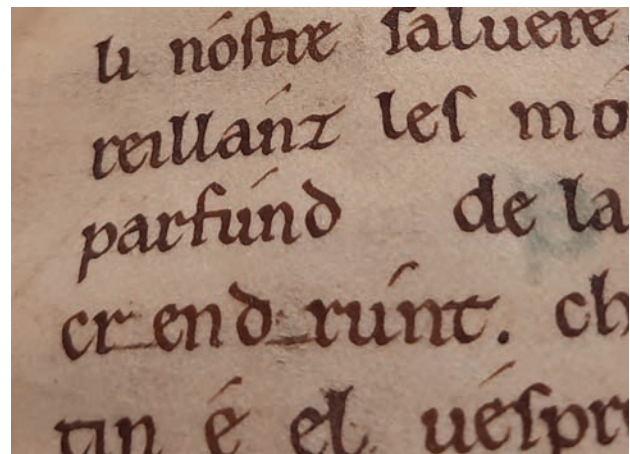 li nóſtre ſaluere
reillánz leſ mó
parfúnd de la
crendrúnt. ch
tin é el uéſpre